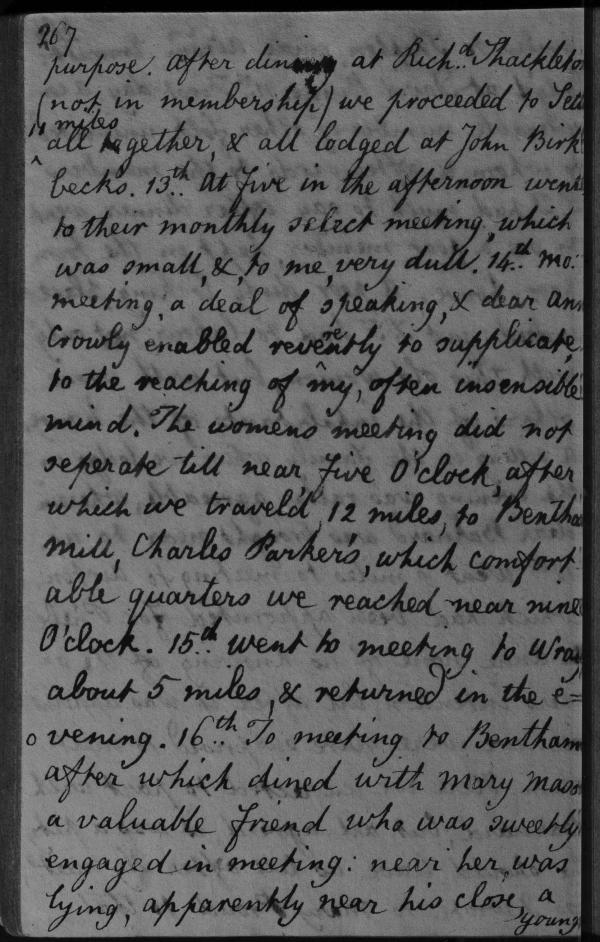 267
purpose. After dining at Rich.d Shackleto
(not in membership) we proceeded to Sett
11 miles
^ all together, & all lodged at John Birk
becks. 13.th At five in the afternoon went
to their monthly select meeting, which
was small, &, to me, very dull. 14.th mo:
meeting, a deal of speaking, & dear Ann
Crowly enabled reverently to supplicate,
to the reaching of my, often insensible
mind. The womens meeting did not
seperate till near five O'clock, after
which we travel'd 12 miles, to Bentha
Mill, Charles Parker's, which comfort
able quarters we reached near nine
O'clock. 15.th went to meeting to Wray
about 5 miles, & returned in the e=
o vening. 16.th To meeting to Bentham
after which dined with Mary Mas
a valuable friend who was sweetly
engaged in meeting: near her, was
lying, apparently near his close, a
young